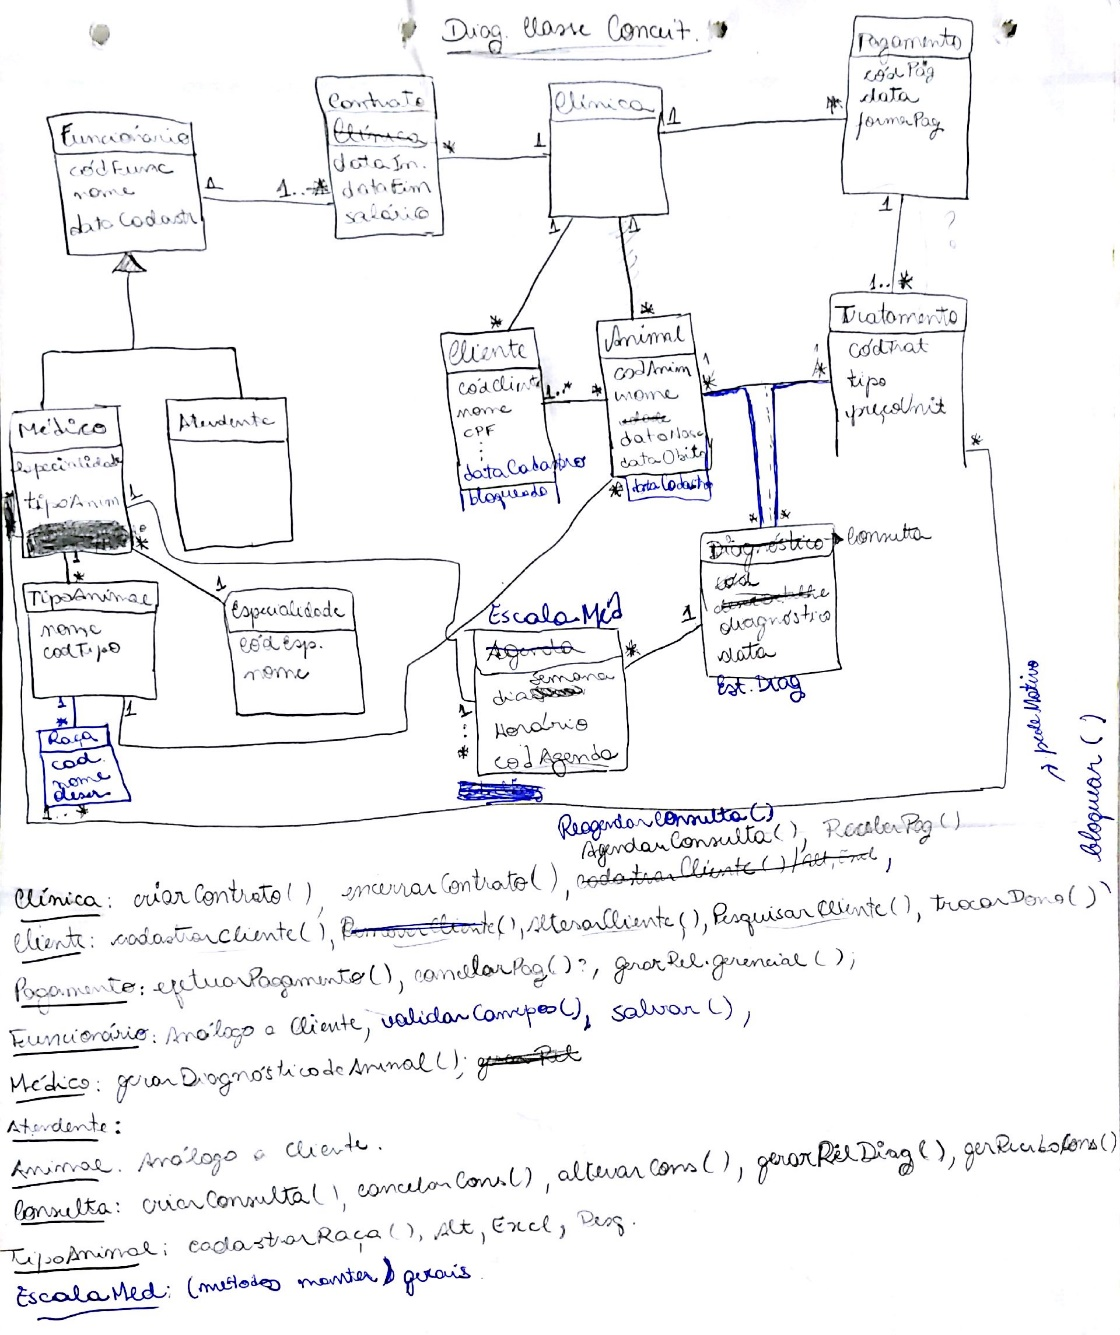 Diag. Classe Conceit.
Pagamento
códPág
data
formaPag
Contrato
Clínica
dataIn.
dataFim
salário
Clínica
Funcionário
códFunc
nome
dataCadastr
1
1..*
*
1
1
*
1
1..*
?
1
*
1
*
Tratamento
códTrat
tipo
preçoUnit
Cliente
códClient
nome
CPF
dataCadastro
bloqueado
1..*
*
Animal
codAnim
nome
idade
dataNasc
dataObito
dataCadastro
*
1
*
1
*
*
*
*
Médico
especialidade
tipoAnim
Atendente
1
*
1
*
1
TipoAnimal
nome
codTipo
Especialidade
códEsp.
nome
Diagnóstico
Consulta
cod
diagnóstico
data
Est. Diag
EscalaMéd
Agenda
dia semana
Horário
códAgenda
*
1
1
:
*
1
*
1
Raça
cod.
nome
descr
1..*
→ pede Motivo
bloquear()
ReagendarConsulta()
AgendarConsulta(), ReceberPag()
Clínica: criarContrato(), encerrarContrato(), cadastrarCliente()/alt, Excl,
Cliente: cadastrarCliente(), RemoverCliente(), AlterarCliente(), PesquisarCliente(), trocarDono()
Pagamento: efetuarPagamento(), cancelarPag()?, gerarRel.gerencial();
Funcionário: Análogo a Cliente, validarCampos(), salvar(),
Médico: gerarDiagnósticodeAnimal(); gerarRel
Atendente:
Animal. Análogo a Cliente.
Consulta: criarConsulta(), cancelarCons(), alterarCons(), gerarRelDiag(), gerReciboCons()
TipoAnimal: cadastrarRaça(), Alt, Excl, Pesq.
EscalaMed: (métodos manter) gerais.